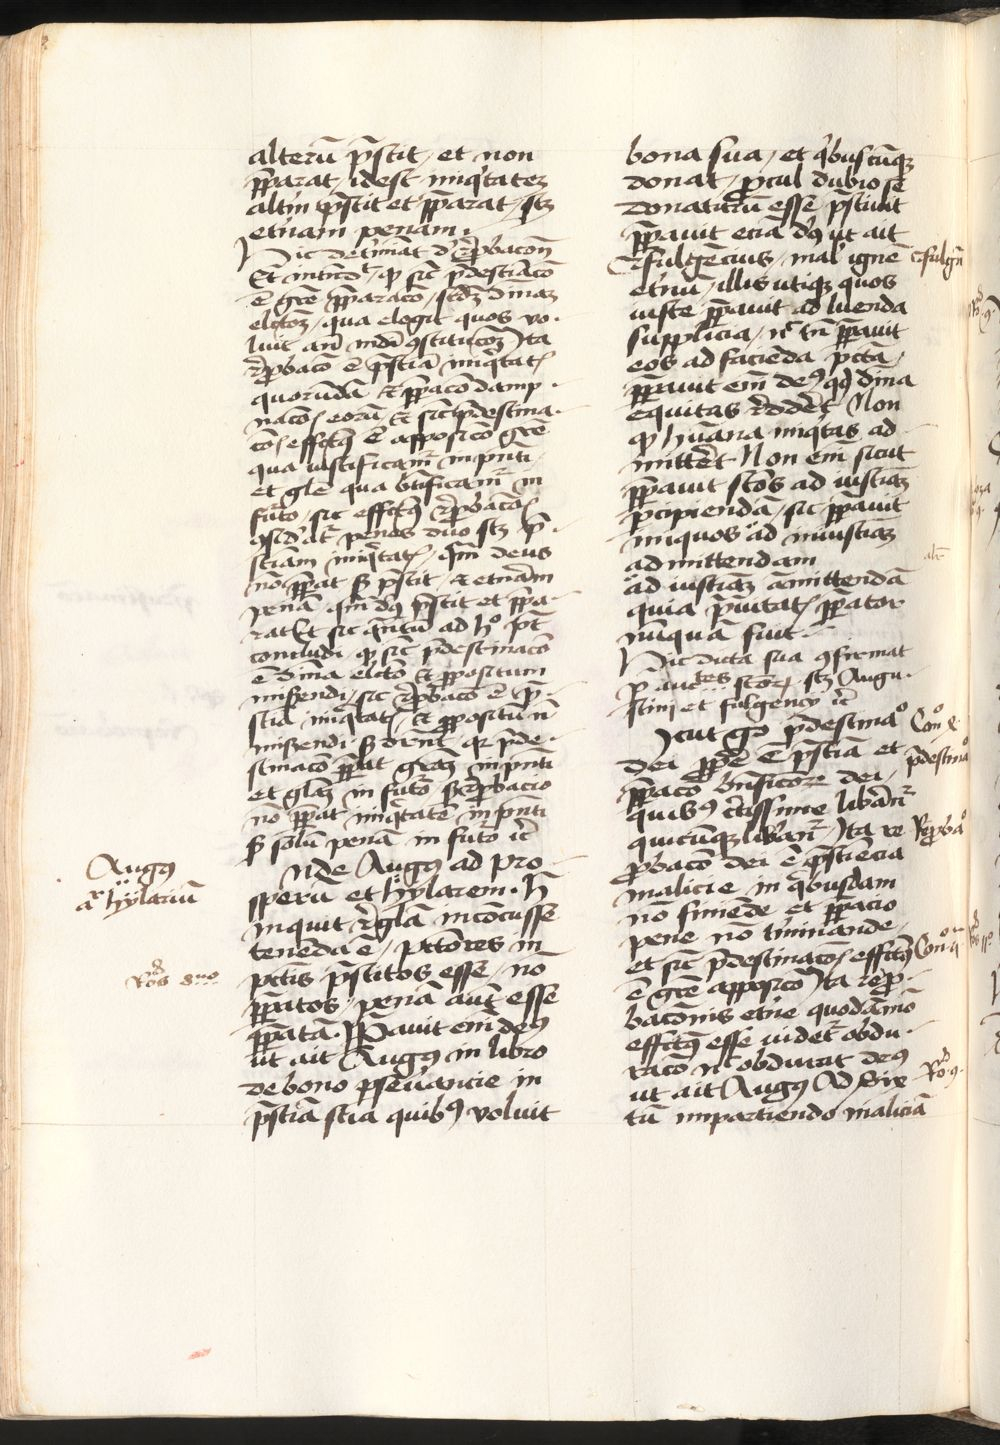 alterū p̄scit / et non
p̄parat / idest iniq̇tatez
altm̄ vp̄scit et p̄parat / scz
et'nam penam .
Hic det'miat d' r̄pbac̄on̄
Et intēdt' q̇ sic p̄destīac̄o
ē gr̄e p̄parac̄o / scdz dīnaz
elc̄ōz / qua elegit quos vo-
luit an̄ mdī ɔstituc̄oz Ita
r̄pbac̄o ē p̄scīa iniq̇tat'
quorūdā et p̄parac̄o damp-
nac̄ois eorū Et sic p̄destina-
c̄ois effct9 ē apposic̄o gr̄e
qua iustificam̄r in pn̄ti
et gl̄e qua bt̄ificam̄r in
fut'o / sic effct9 r̄pbac̄ois
penes duo scz p̄-
sciam iniq̇tat' / qm̄ deus
nō p̄parat sz p̄scit / et et'nam
penā qm̄ d9 p̄scit et p̄pa-
rat Et sic q̄ntū ad h° pt̄
concludi q̇ sic p̄destinac̄o
ē dīna elc̄o et p̄positum
miserendi / sic r̄pbac̄o ē p̄-
scīa iniq̇tat' et p̄positū n̄
miserendi sz d'rn̄t qr p̄de-
stinac̄o p̄parat graz in pn̄ti
et gl̄az in fut'o / sz r̄pbacio
nō p̄parat iniq̇tatē in pn̄ti
sz solū penā in fut'o ic̄
Unde Augɡ9 ad Pro-
sperū et hÿlarem . h̄
inquit r̄gla inconcusse
tenenda ē / pctores in
pctis p̄scitos esse / nō
p̄patos / penā aut̄ esse
p̄patā . P̄pauit eni de9
ut ait Aug9 in libro
de bono pseu'ancie in
p̄scīa scia quib9 voluit
bona sua / et q̇buscūq̨
donat / procul dubio se
donaturū esse p̄sciuit
p̄pauit eciā d9 ut ait
Fulgēcius / mal' ignē
et'nū / illis utiq̨ quos
iuste p̄pauit ad luenda
supplicia / nc̄ tn̄ p̄pauit
eos ad facienda pctā /
p̄pauit eni de9 qd dīna
equitas r̄ddēt Non
q̇ hūana iniq̇tas ad
mittēt Non eni sicut
p̄pauit scōs ad iusticiaz
pcipiendā / sic p̄pauit
iniquos ad iniusticiaz
admittendam
ad iusticiaz amittendā
quia p̄uitat' p̄pator
nūquā fuit .
Hic dicta sua ɔfirmat
p auctes scōꝝ scz Augu-
stini et fulgencij ic̄
Sicut g° p̄destina°
dei p̄prie ē p̄scīa et
p̄pac̄o bn̄ficioꝝ dei /
quib9 c'tissime libān̄r
quicūq̨ liberan̄r / Ita re
probac̄o dei ē p̄sciencia
malicie in q̇busdam
nō finiende et p̄pacio
pene nō t'minande /
et sic p̄destinac̄ois effct9
ē gr̄e apposic̄o Ita repro-
bac̄onis et'ne quodāmō
effct9 esse videt̄r obdu-
rac̄o nc̄ obdurat de9
ut ait Aug9 Ad Six
tū impartiendo maliciā
Aug9
ad hÿlariū
Ros duo
fulgn̄
Con° 
p̄destina°
Reproba°
Con°
Ro . 9 .